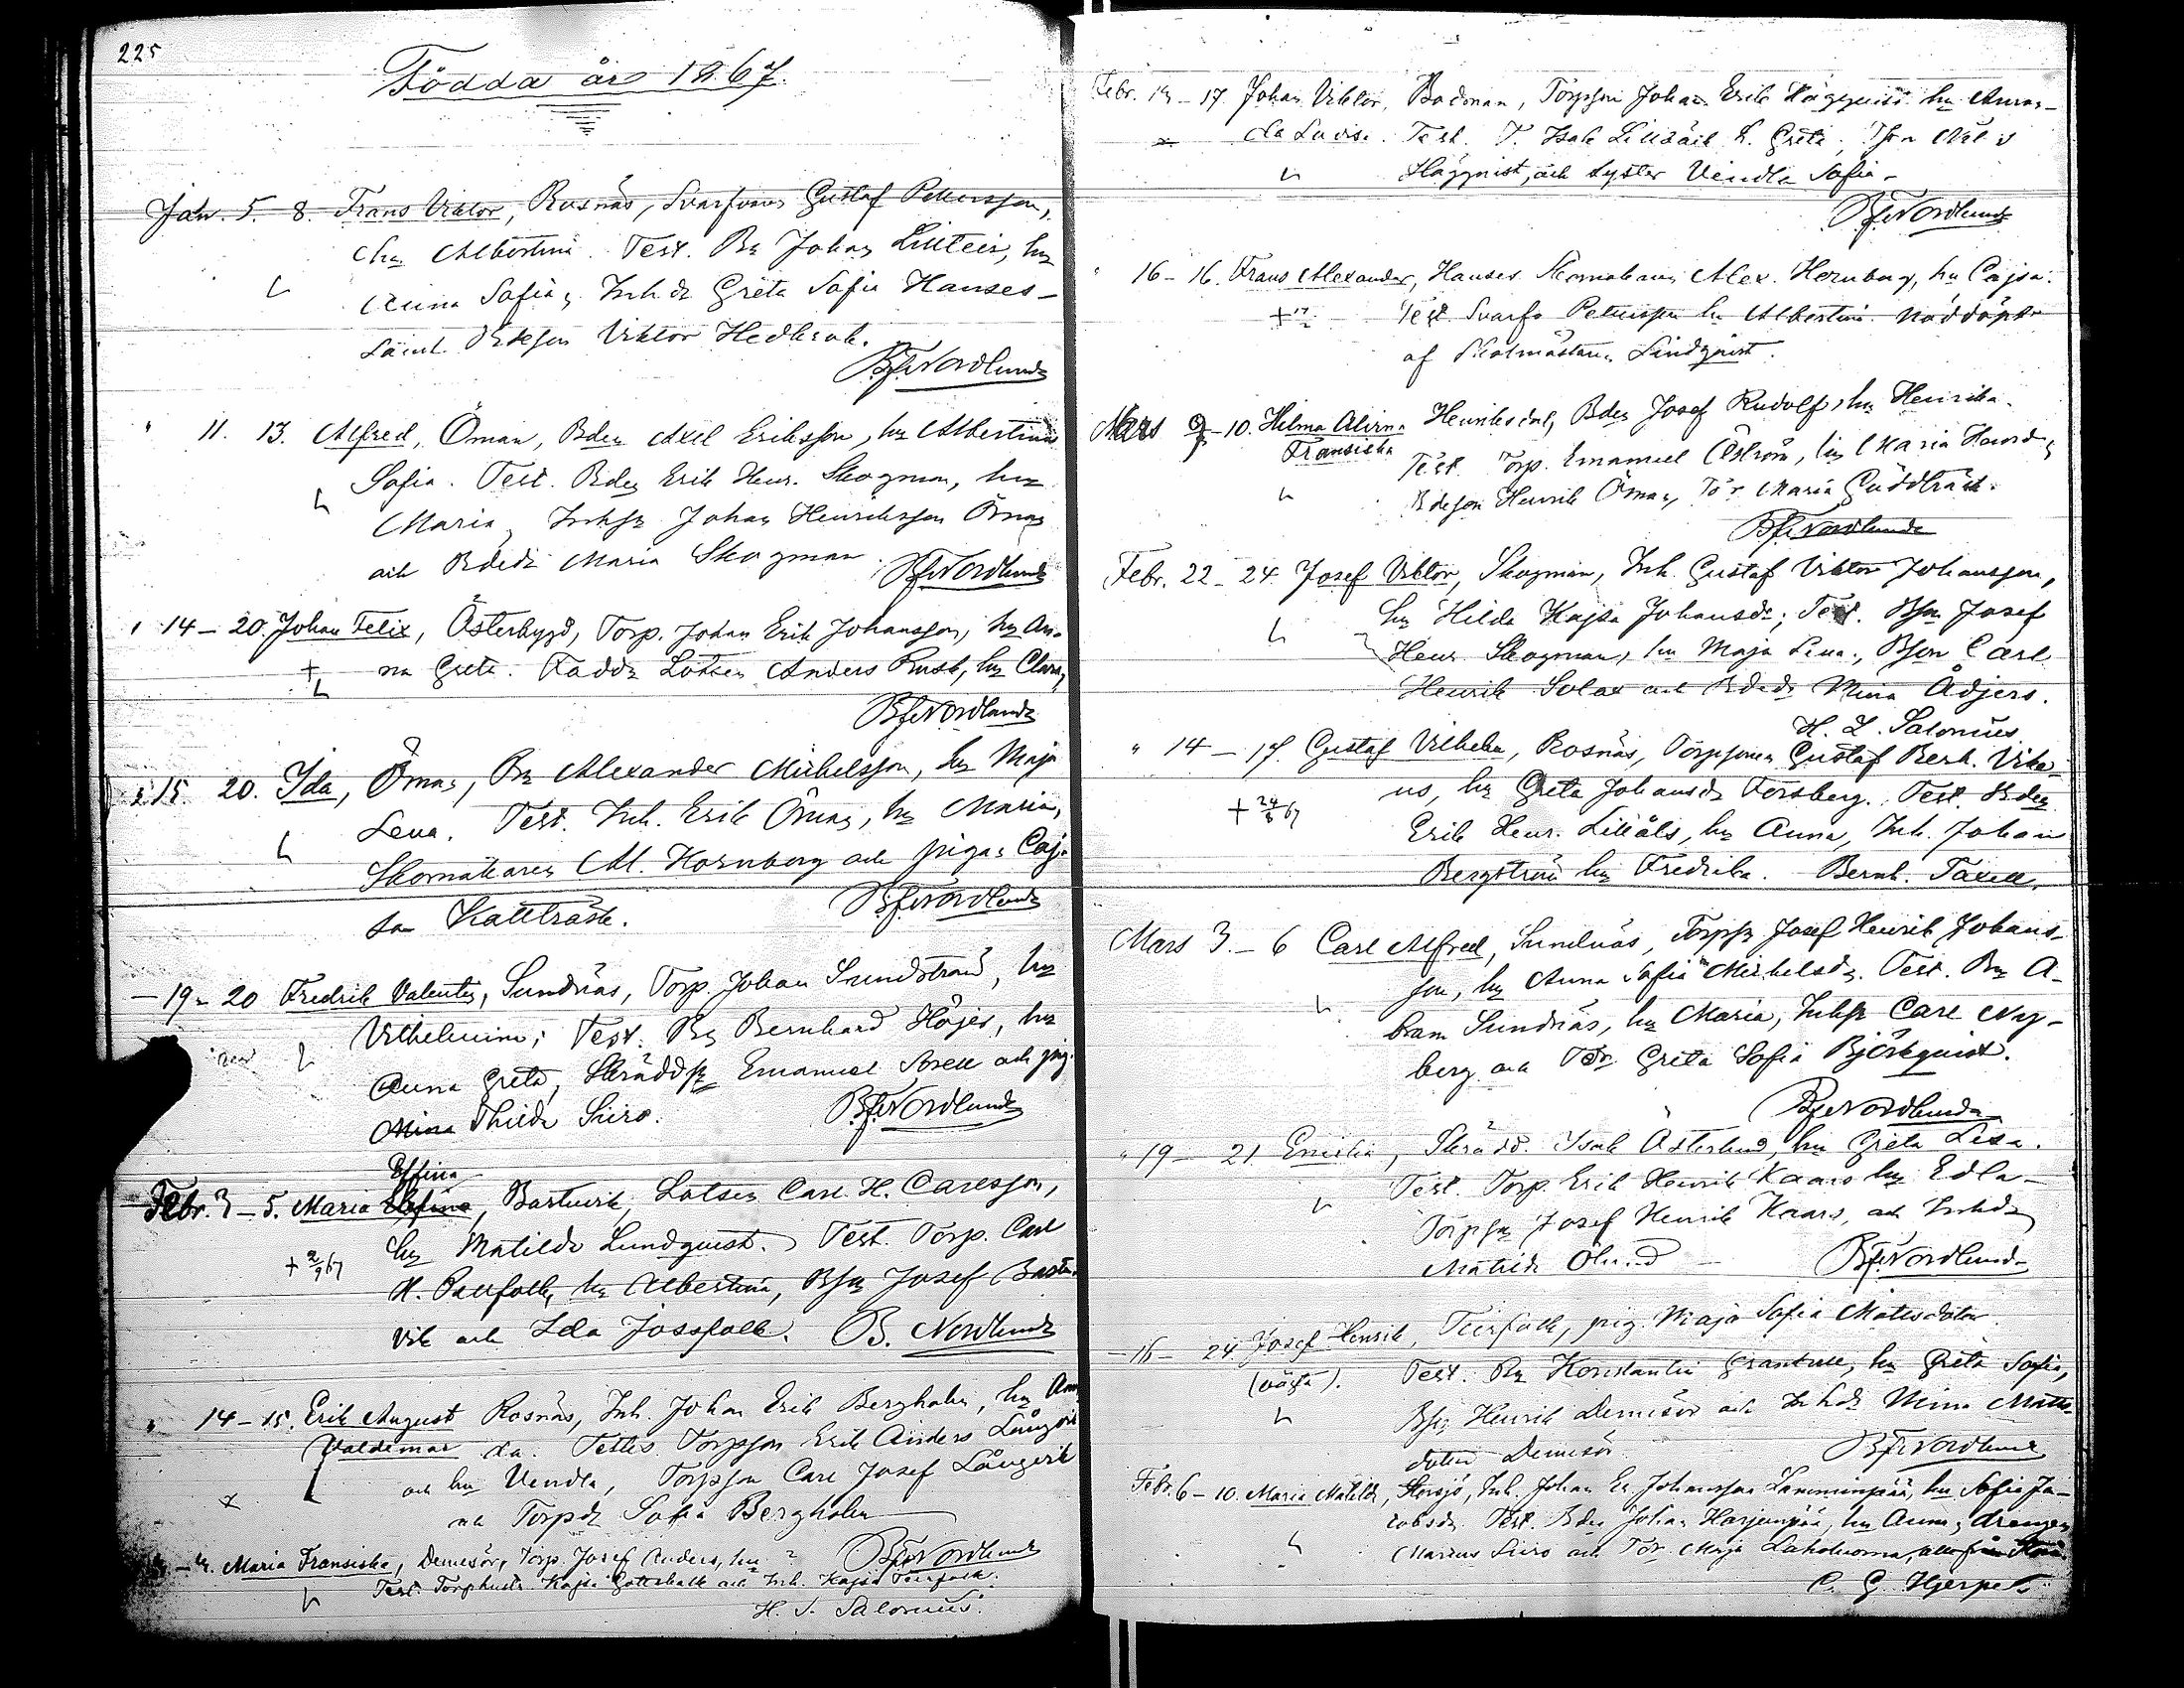 225
Födda år 1867.
Jan. 5. 8. Frans Viktor, Rosnäs, Svarfvaren Gustaf Pettersson,
hu Albertina. Test. Bn Johan Lillteir, hu
Anna Sofia, Inh.dr Greta Sofia Hanses-
Viktor Hedkrok.
Bj. Nordlund
" 11. 13. Alfred, Öman, Bden Axel Eriksson, hu Albertina
Sofia. Test. Bden Erik Henr. Skogman, hu
Maria, Inhsn Johan Henriksson Öman
och Bdedr Maria Skogman.
Bj. Nordlund
" 14-20. Johan Felix, Österbygd, Torp. Johan Erik Johansson, hu An-
na Greta. Fadd. Lotsen Anders Rusk, hu Clara,
Bj. Nordlund
" 15. 20. Ida, Öman, Bn Alexander Mickelsson, hu Maja
Lena. Test. Inh. Erik Öman, hu Maria,
Skomakaren Al. Hornborg och pigan Caj-
sa Kallträsk.
Bj. Nordlund
- 19- 20 Fredrik Valentin, Sundnäs, Torp. Johan Sundström, hu
Vilhelmina; Test. Bn Bernhard Höijer, hu
Anna Greta, Skräddsn Emanuel Sorell och pig.
Mina Thilda Siiro.
Bj. Nordlund
Effina
Febr. 3-5. Maria, Bastuvik, Lotsen Carl H. Carlsson,
+ 2/9 67 hu Matilda Lundquist. Test. Torp. Carl
H. Pellfolk, hu Albertina, Bsn Josef Bastu-
vik och Ida Jossfolk. B. Nordlund
" 14-15. Erik August Rosnäs, Inh. Johan Erik Bergholm, hu Aman-
Valdemar da. Testes Torpson Erik Anders Långvik
och hu Vendla, Torpson Carl Josef Långvik
och Torpdr Sofia Bergholm
Bj. Nordlund
Maria Fransiska, Demesör, Torp. Josef Anders, hu ?
Test. Torphustr Kajsa Gottskalk och Inh. Kajsa Teirfolk.
H. L. Salonius.
Febr. 17. Johan Viktor, Bodman, Torpson Johan Erik Häggqvist hu Aman-
da Lovisa. Test. T. Isak Lillbäck h. Greta,
Häggqvist, och syster Vendla Sofia-
Bj. Nordlund
" 16-16. Frans Alexander, Hanses Skomakaren Alex. Hornborg, hu Cajsa.
Test. Svarfv. Pettersson hu Albertina. Nöddöpt
af Skolmästaren Lindqvist.
Mars 9-10. Hilma Alvina Henriksdal, Bden Josef Rudolf, hu Henrika.
Fransiska Test. Torp. Emanuel Åström, hu Maria
Bdeson Henrik Öman, Tör Maria Gäddträsk.
Bj. Nordlund
Febr. 22-24. Josef Viktor, Skogman, Inh. Gustaf Viktor Johansson,
hu Hilda Kajsa Johansdr; Test. Bson Josef
Henr. Skogman, hu Maja Lena, Bson Carl
Henrik Solax och Bdedr Mina Ådjers.
H. L. Salonius.
" 14-17. Gustaf Vilhelm, Rosnäs, Torpsonen Gustaf Berh. Vike-
us, hu Greta Johansdr Forsberg. Test. Bden
Erik Henr. Lillåls, hu Anna, Inh. Johan
Bergström hu Fredrika. Bernh. Taxell.
Mars 3.-6 Carl Alfred, Sundnäs, Torpsn Josef Henrik Johans-
son, hu Anna Sofia Mickelsdr. Test. Bn A-
bram Sundnäs, hu Maria, Inhsn Carl Ny-
berg och Tör Greta Sofia Björkquist.
Bj. Nordlund
" 19- 21. Emilia, Skrädd. Isak Österlund, hu Greta Lisa.
Test. Torp. Erik Henrik Kaars hu Edla-
Torpsn Josef Henrik Kaars, och Inhdr
Matilda Ölund
Bj. Nordlund
-16- 24. Josef Henrik, Teirfolk, pig. Maja Sofia Matsdoter.
(oägta). Test. Bn Konstantin Grankull, hu Greta Sofia,
Bsn Henrik Demesör och Inhdr Mina Matts-
doter Demesör
Bj. Nordlund
Febr. 6-10. Maria Matilda, Storsjö, Inh. Johan Er. Johansson Lamminpää, hu Sofia Ja-
kobsdr. Test. Bden Johan Harjunpää, hu Anna, drengen
Marius Siiro och Tör Maja Laholuoma, alla från
C. G. Hjerpe